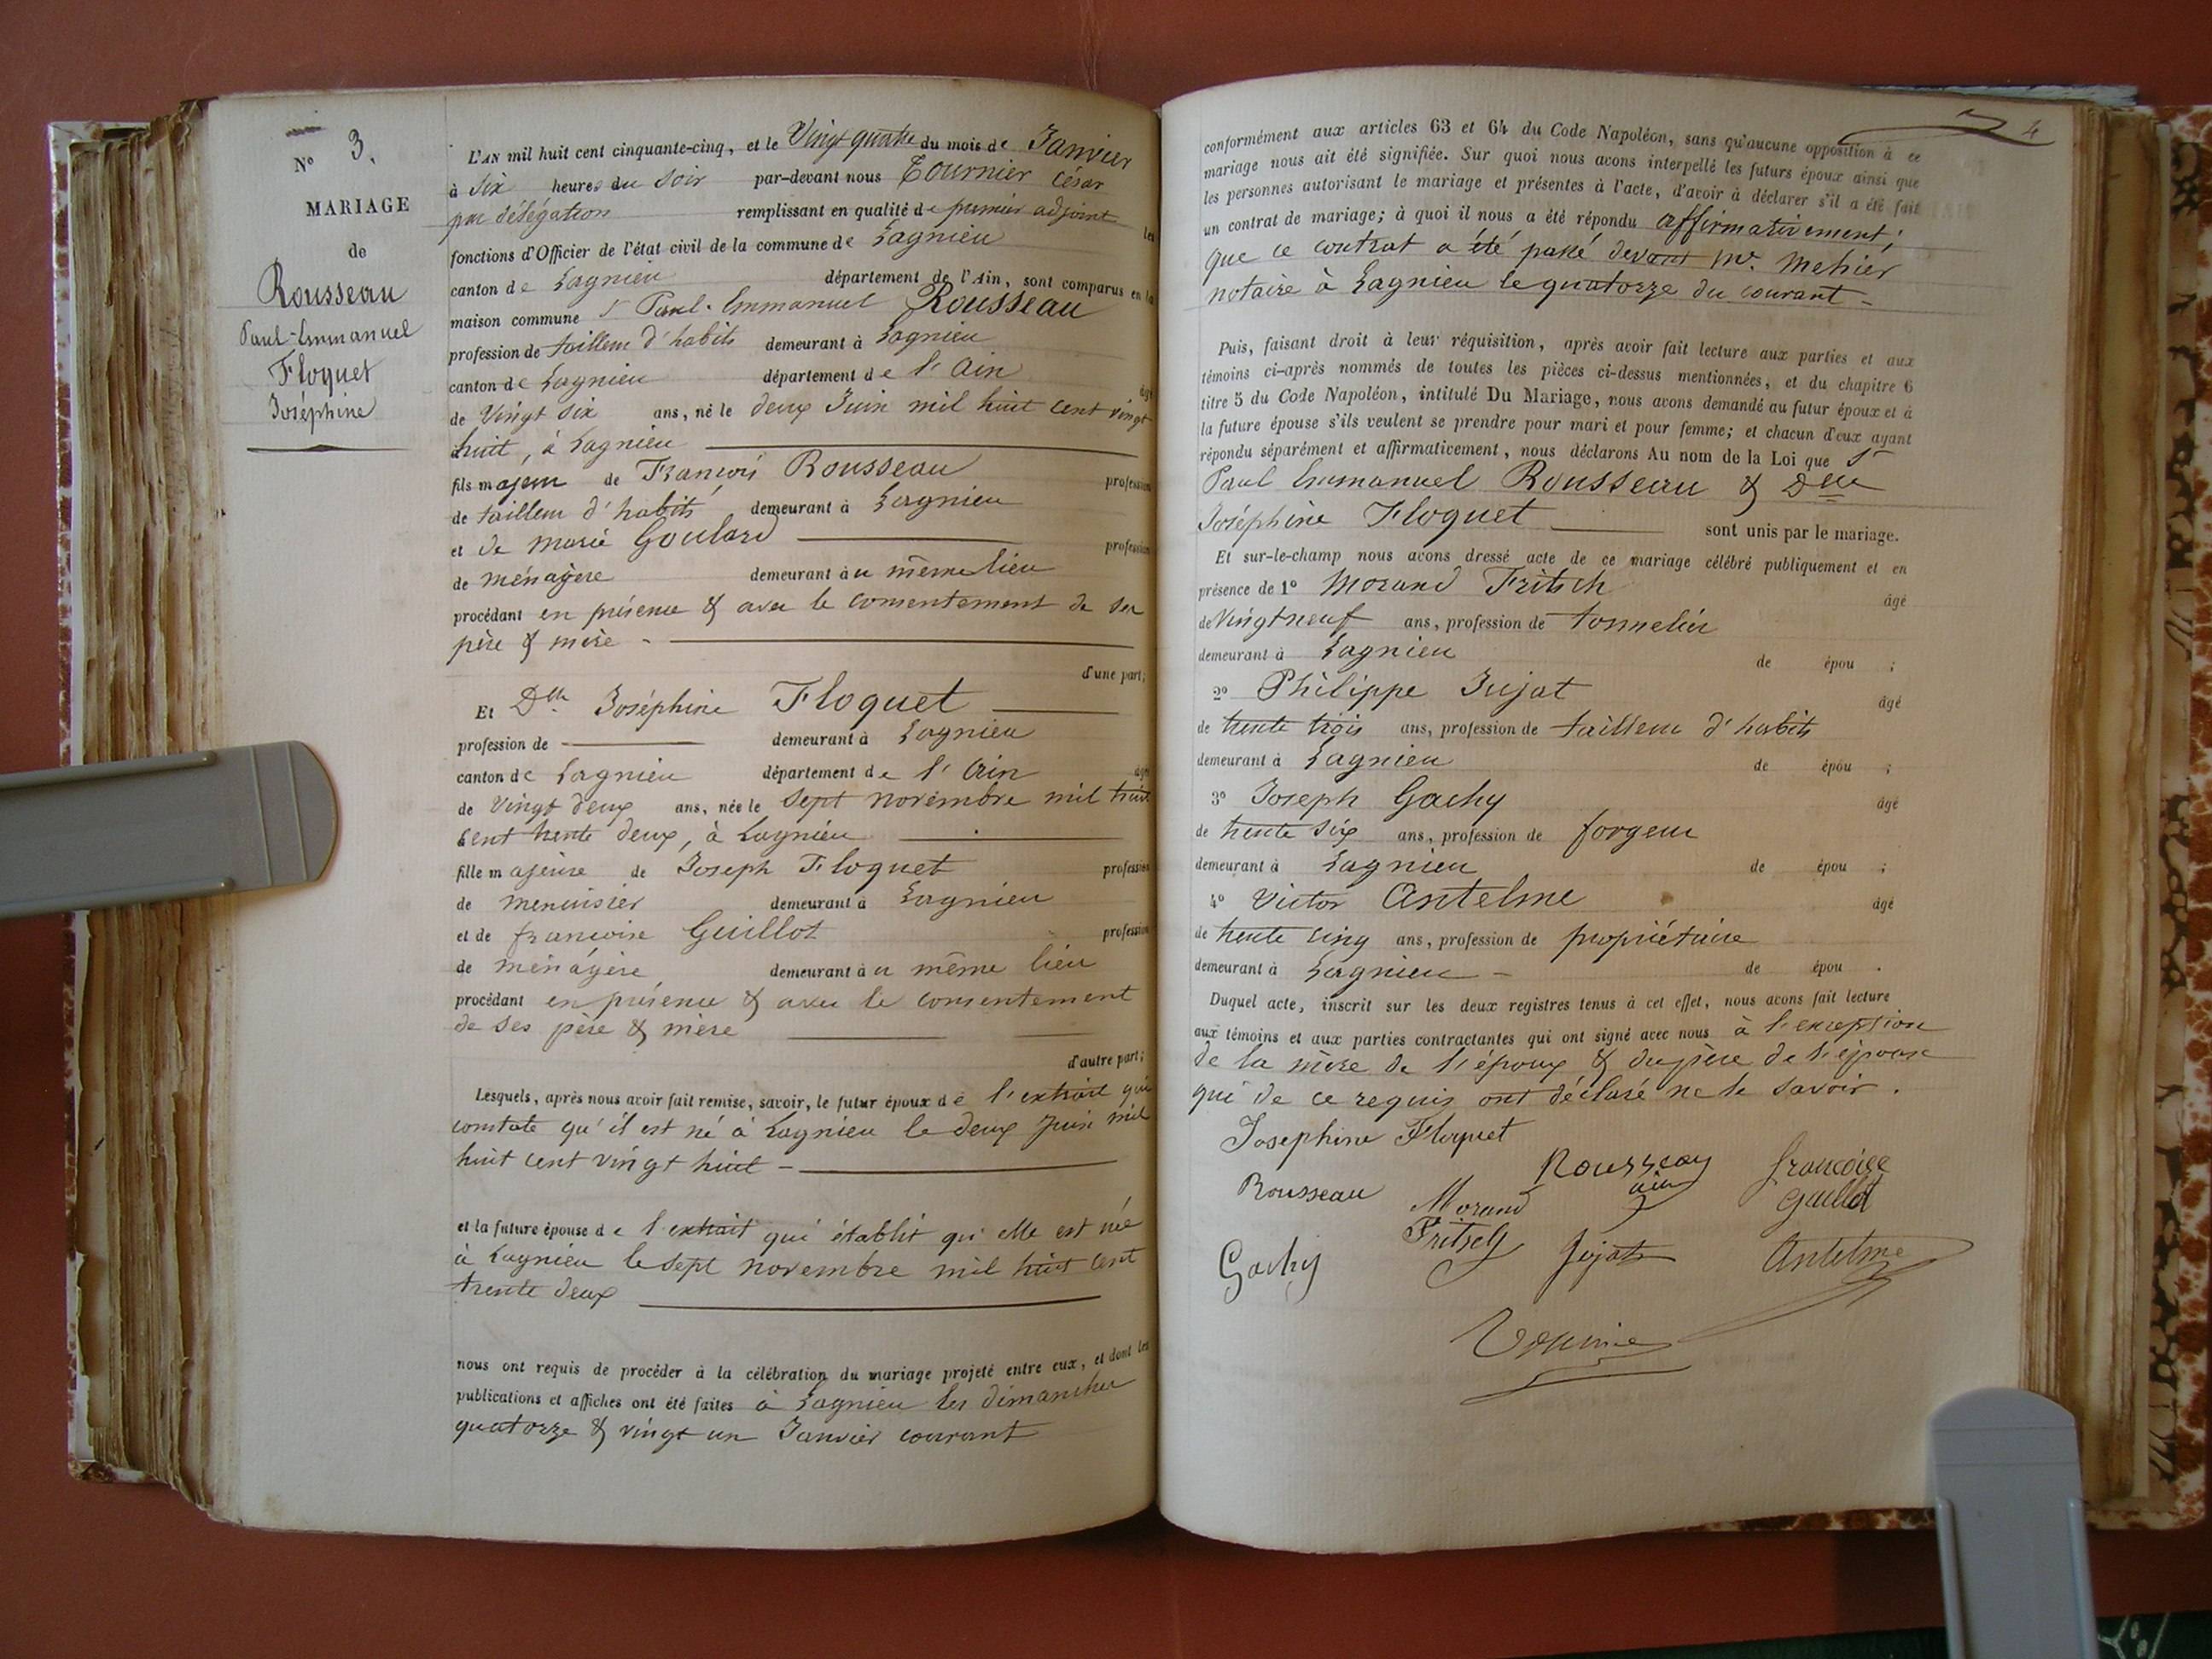 N° 3.
MARIAGE
de
Rousseau
Paul-Emmanuel
Floquet
Joséphine
L'AN mil huit cent cinquante-cinq, et le Vingt quatre du mois de Janvier
à Six heures du Soir par-devant nous Tournier César
par délégation remplissant en qualité de premier adjoint les
fonctions d'Officier de l'état civil de la commune de Lagnieu
canton de Lagnieu département de l'Ain, sont comparus en la
maison commune S Paul-Emmanuel Rousseau
profession de tailleur d'habits demeurant à Lagnieu
canton de Lagnieu département de l'Ain âgé
de Vingt six ans, né le deux Juin mil huit cent vingt
huit, à Lagnieu
fils majeur de François Rousseau profession
de tailleur d'habits demeurant à Lagnieu
et de marie Goulard profession
de ménagère demeurant au même lieu
procédant en présence & avec le consentement de ses
père & mère -
d'une part;
Et Dlle Joséphine Floquet
profession de demeurant à Lagnieu
canton de Lagnieu département de l'Ain âgée
de Vingt deux ans, née le Sept novembre mil huit
cent trente deux, à Lagnieu
fille majeure de Joseph Floquet profession
de menuisier demeurant à Lagnieu
et de françoise Guillot profession
de ménagère demeurant au même lieu
procédant en présence & avec le consentement
de ses père & mère
d'autre part;
Lesquels, après nous avoir fait remise, savoir, le futur époux de l'extrait qui
constate qu'il est né à Lagnieu le deux Juin mil
huit cent vingt huit -
et la future épouse de l'extrait qui établit qu'elle est née
à Lagnieu le sept novembre mil huit cent
trente deux
nous ont requis de procéder à la célébration du mariage projeté entre eux, et dont les
publications et affiches ont été faites à Lagnieu les dimanches
quatorze & vingt un Janvier courant
4
conformément aux articles 63 et 64 du Code Napoléon, sans qu'aucune opposition à ce
mariage nous ait été signifiée. Sur quoi nous avons interpellé les futurs époux ainsi que
les personnes autorisant le mariage et présentes à l'acte, d'avoir à déclarer s'il a été fait
un contrat de mariage; à quoi il nous a été répondu affirmativement;
que ce contrat a été passé devant Me. Mehier
notaire à Lagnieu le quatorze du courant -
Puis, faisant droit à leur réquisition, après avoir fait lecture aux parties et aux
témoins ci-après nommés de toutes les pièces ci-dessus mentionnées, et du chapitre 6
titre 5 du Code Napoléon, intitulé Du Mariage, nous avons demandé au futur époux et à
la future épouse s'ils veulent se prendre pour mari et pour femme; et chacun d'eux ayant
répondu séparément et affirmativement, nous déclarons Au nom de la Loi que Sr
Paul Emmanuel Rousseau & Dlle
Joséphine Floquet sont unis par le mariage.
Et sur-le-champ nous avons dressé acte de ce mariage célébré publiquement et en
présence de 1° Morand Fritsch âgé
de Vingt neuf ans, profession de tonnelier
demeurant à Lagnieu de épou ;
2° Philippe Jujat âgé
de trente trois ans, profession de tailleur d'habits
demeurant à Lagnieu de épou ;
3° Joseph Gachy âgé
de trente Six ans, profession de forgeur
demeurant à Lagnieu de épou ;
4° Victor Antelme âgé
de trente cinq ans, profession de propriétaire
demeurant à Lagnieu - de épou .
Duquel acte, inscrit sur les deux registres tenus à cet effet, nous avons fait lecture
aux témoins et aux parties contractantes qui ont signé avec nous à l'exception
de la mère de l'époux & du père de l'épouse
qui de ce requis ont déclaré ne le savoir.
Josephine Floquet
Rousseau
Rousseau
françoise
Guillot
Morand
Fritsch
Gachy
Jujat
Antelme